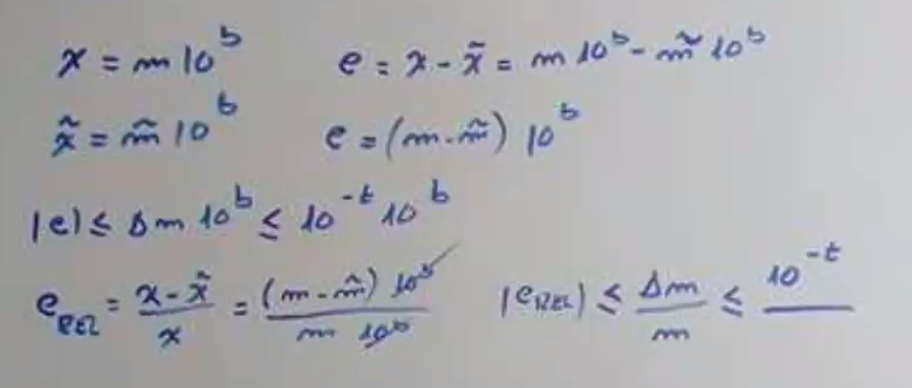 x = m 10^b   e = x - x̃ = m 10^b - m̃ 10^b
x̃ = m̃ 10^b   e = (m - m̃) 10^b
|e| ≤ Δm 10^b ≤ 10^-t 10^b
e_REL = (x - x̃)/x = ((m - m̃) 10^b)/(m 10^b)   |e_REL| ≤ Δm/m ≤ 10^-t/